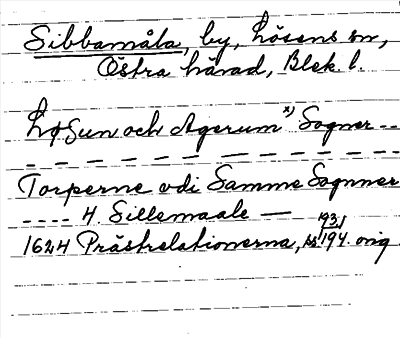 Sibbamåla, by, Lösens sn,
Östra härad, Blek. l.
Løsen och Agerum x) Sogner --
- - - - - - - - - - - -
Torperne udi Samme Sognner
---- H. Sillemaale —
1624 Prästrelationerna, s. 193, 194. orig